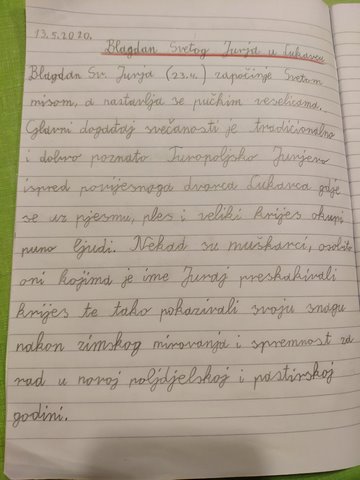 13.5.2020.
Blagdan Svetog Jurja u Lukavcu
Blagdan Sv. Jurja (23.4.) započinje Svetom
misom, a nastavlja se pučkim veselicama.
Glavni događaj svečanosti je tradicionalno
i dobro poznato Turopoljsko Jurjevo
ispred povijesnoga dvorca Lukavca gdje
se uz pjesmu, ples i veliki krijes okupi
puno ljudi. Nekad su muškarci, osobito
oni kojima je ime Juraj preskakivali
krijes te tako pokazivali svoju snagu
nakon zimskog mirovanja i spremnost za
rad u novoj poljdjelskoj i pastirskoj
godini.